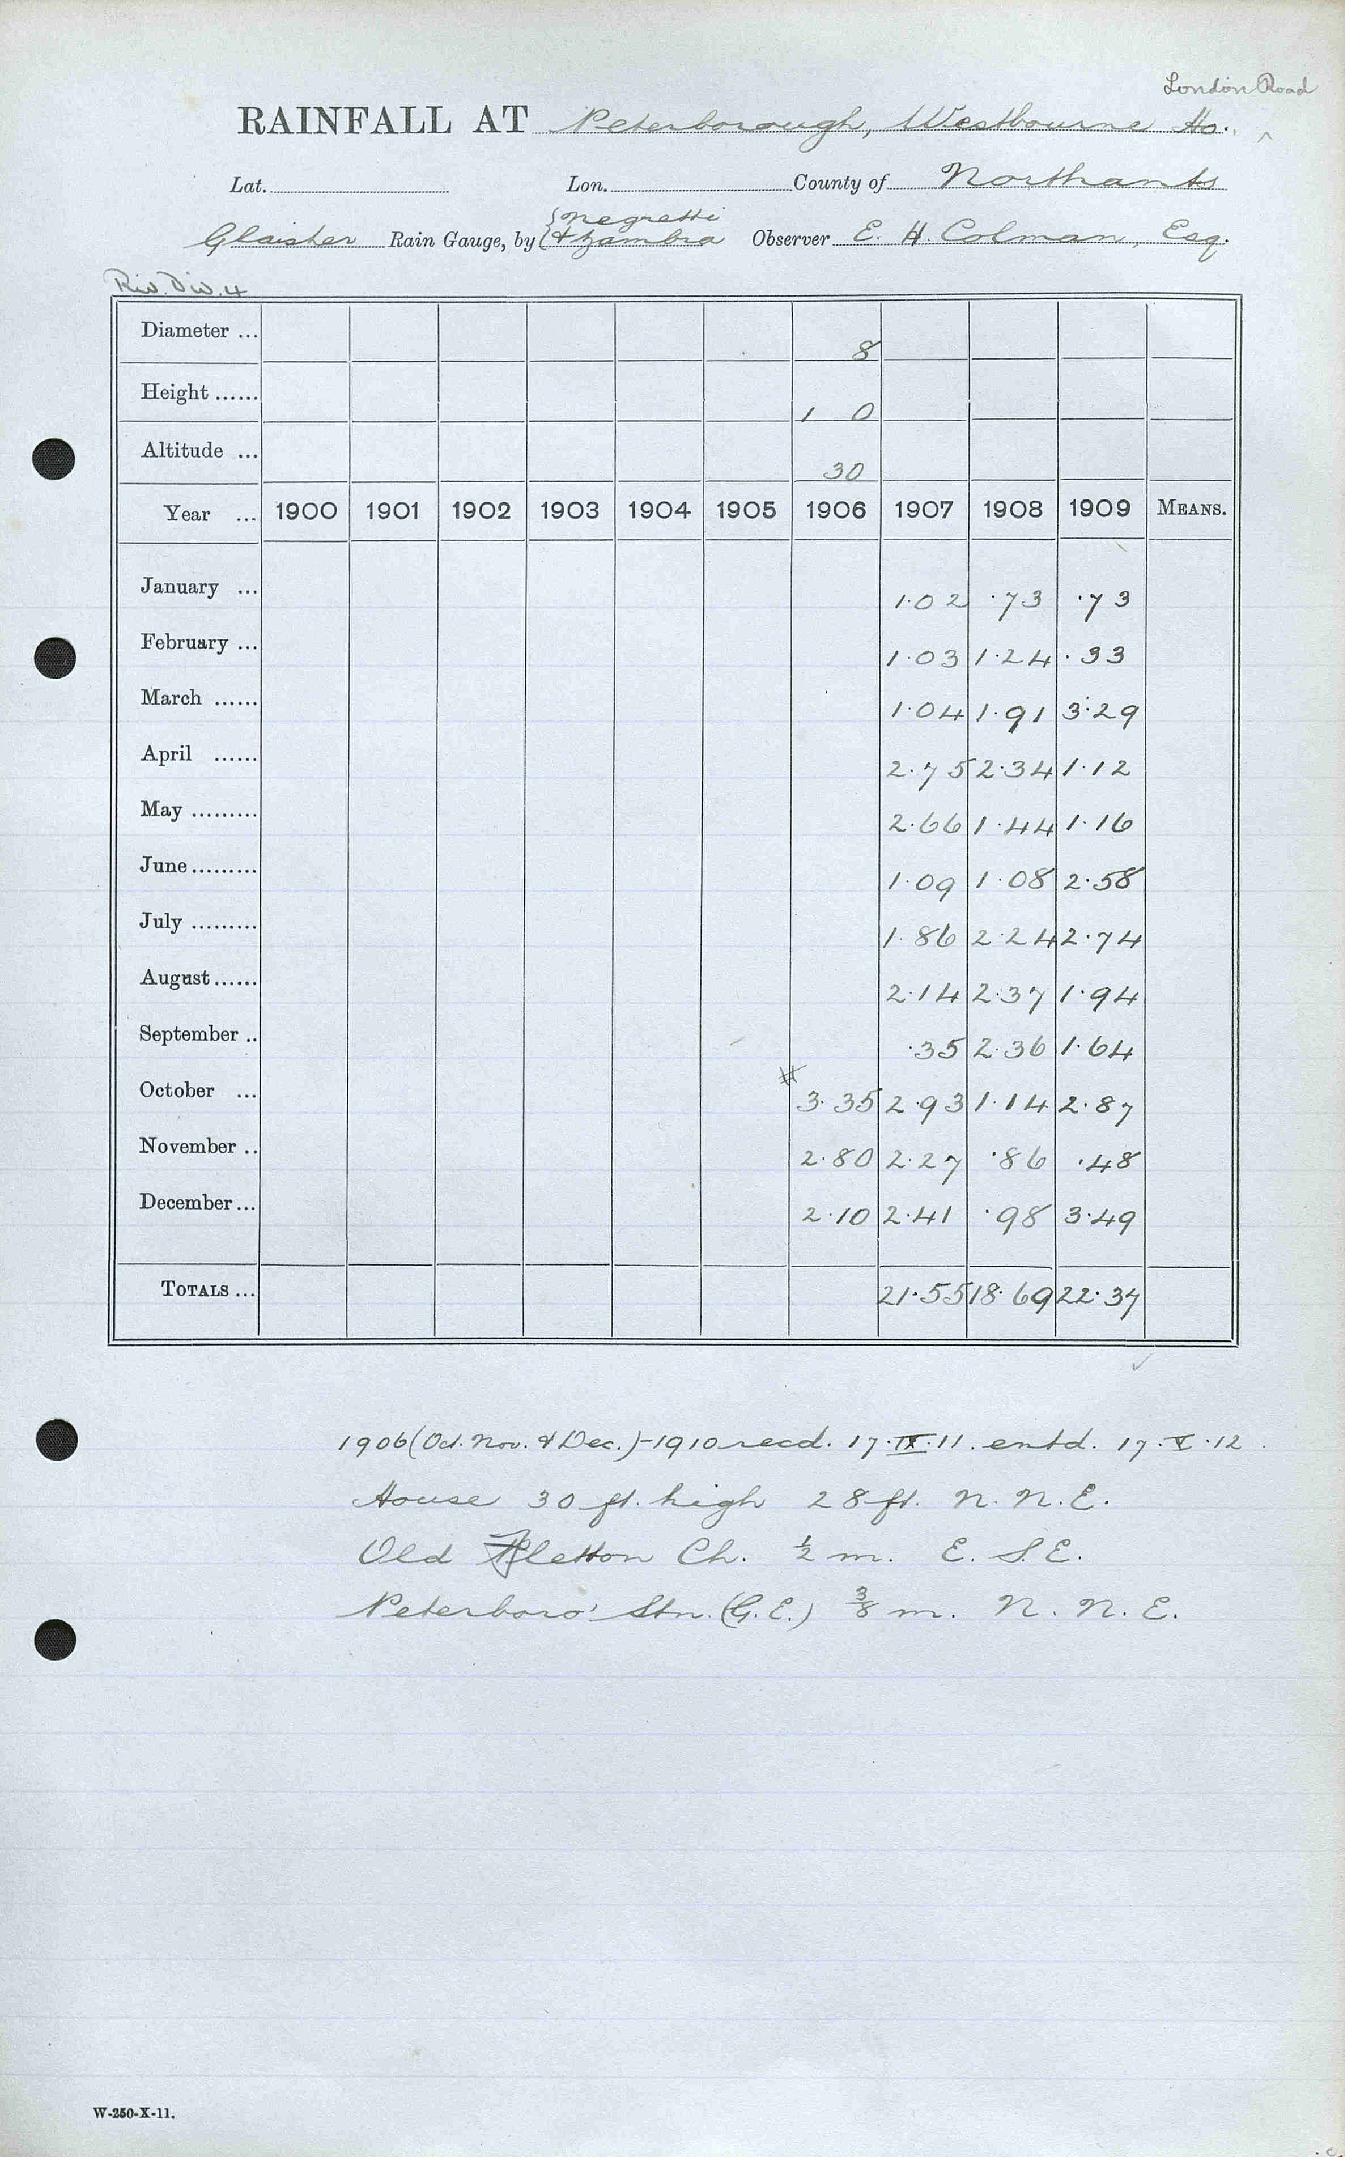 London Road
RAINFALL AT Peterborough, Westbourne Ho. ^
Lat. Lon. County of Northants
Glaisher Rain Gauge, by { Negretti & Zambra Observer E. H. Colman, Esq.
Riv. Div. 4
Diameter ... 8
Height ...... 1 0
Altitude ... 30
Year ... 1900 1901 1902 1903 1904 1905 1906 1907 1908 1909 MEANS.
January ... 1.02 .73 .73
February ... 1.03 1.24 .33
March ...... 1.04 1.91 3.29
April ...... 2.75 2.34 1.12
May ......... 2.66 1.44 1.16
June ......... 1.09 1.08 2.58
July ......... 1.86 2.24 2.74
August ...... 2.14 2.37 1.94
September .. .35 2.36 1.64
October ... # 3.35 2.93 1.14 2.87
November .. 2.80 2.27 .86 .48
December ... 2.10 2.41 .98 3.49
TOTALS ... 21.55 18.69 22.37
1906 (Oct. Nov. & Dec.) - 1910 recd. 17.IX.11. entd. 17.V.12.
House 30 ft. high 28 ft. N. N. E.
Old Fletton Ch. ½ m. E. S. E.
Peterboro' Stn. (G.E.) ⅜ m. N. N. E.
W-250-X-11.